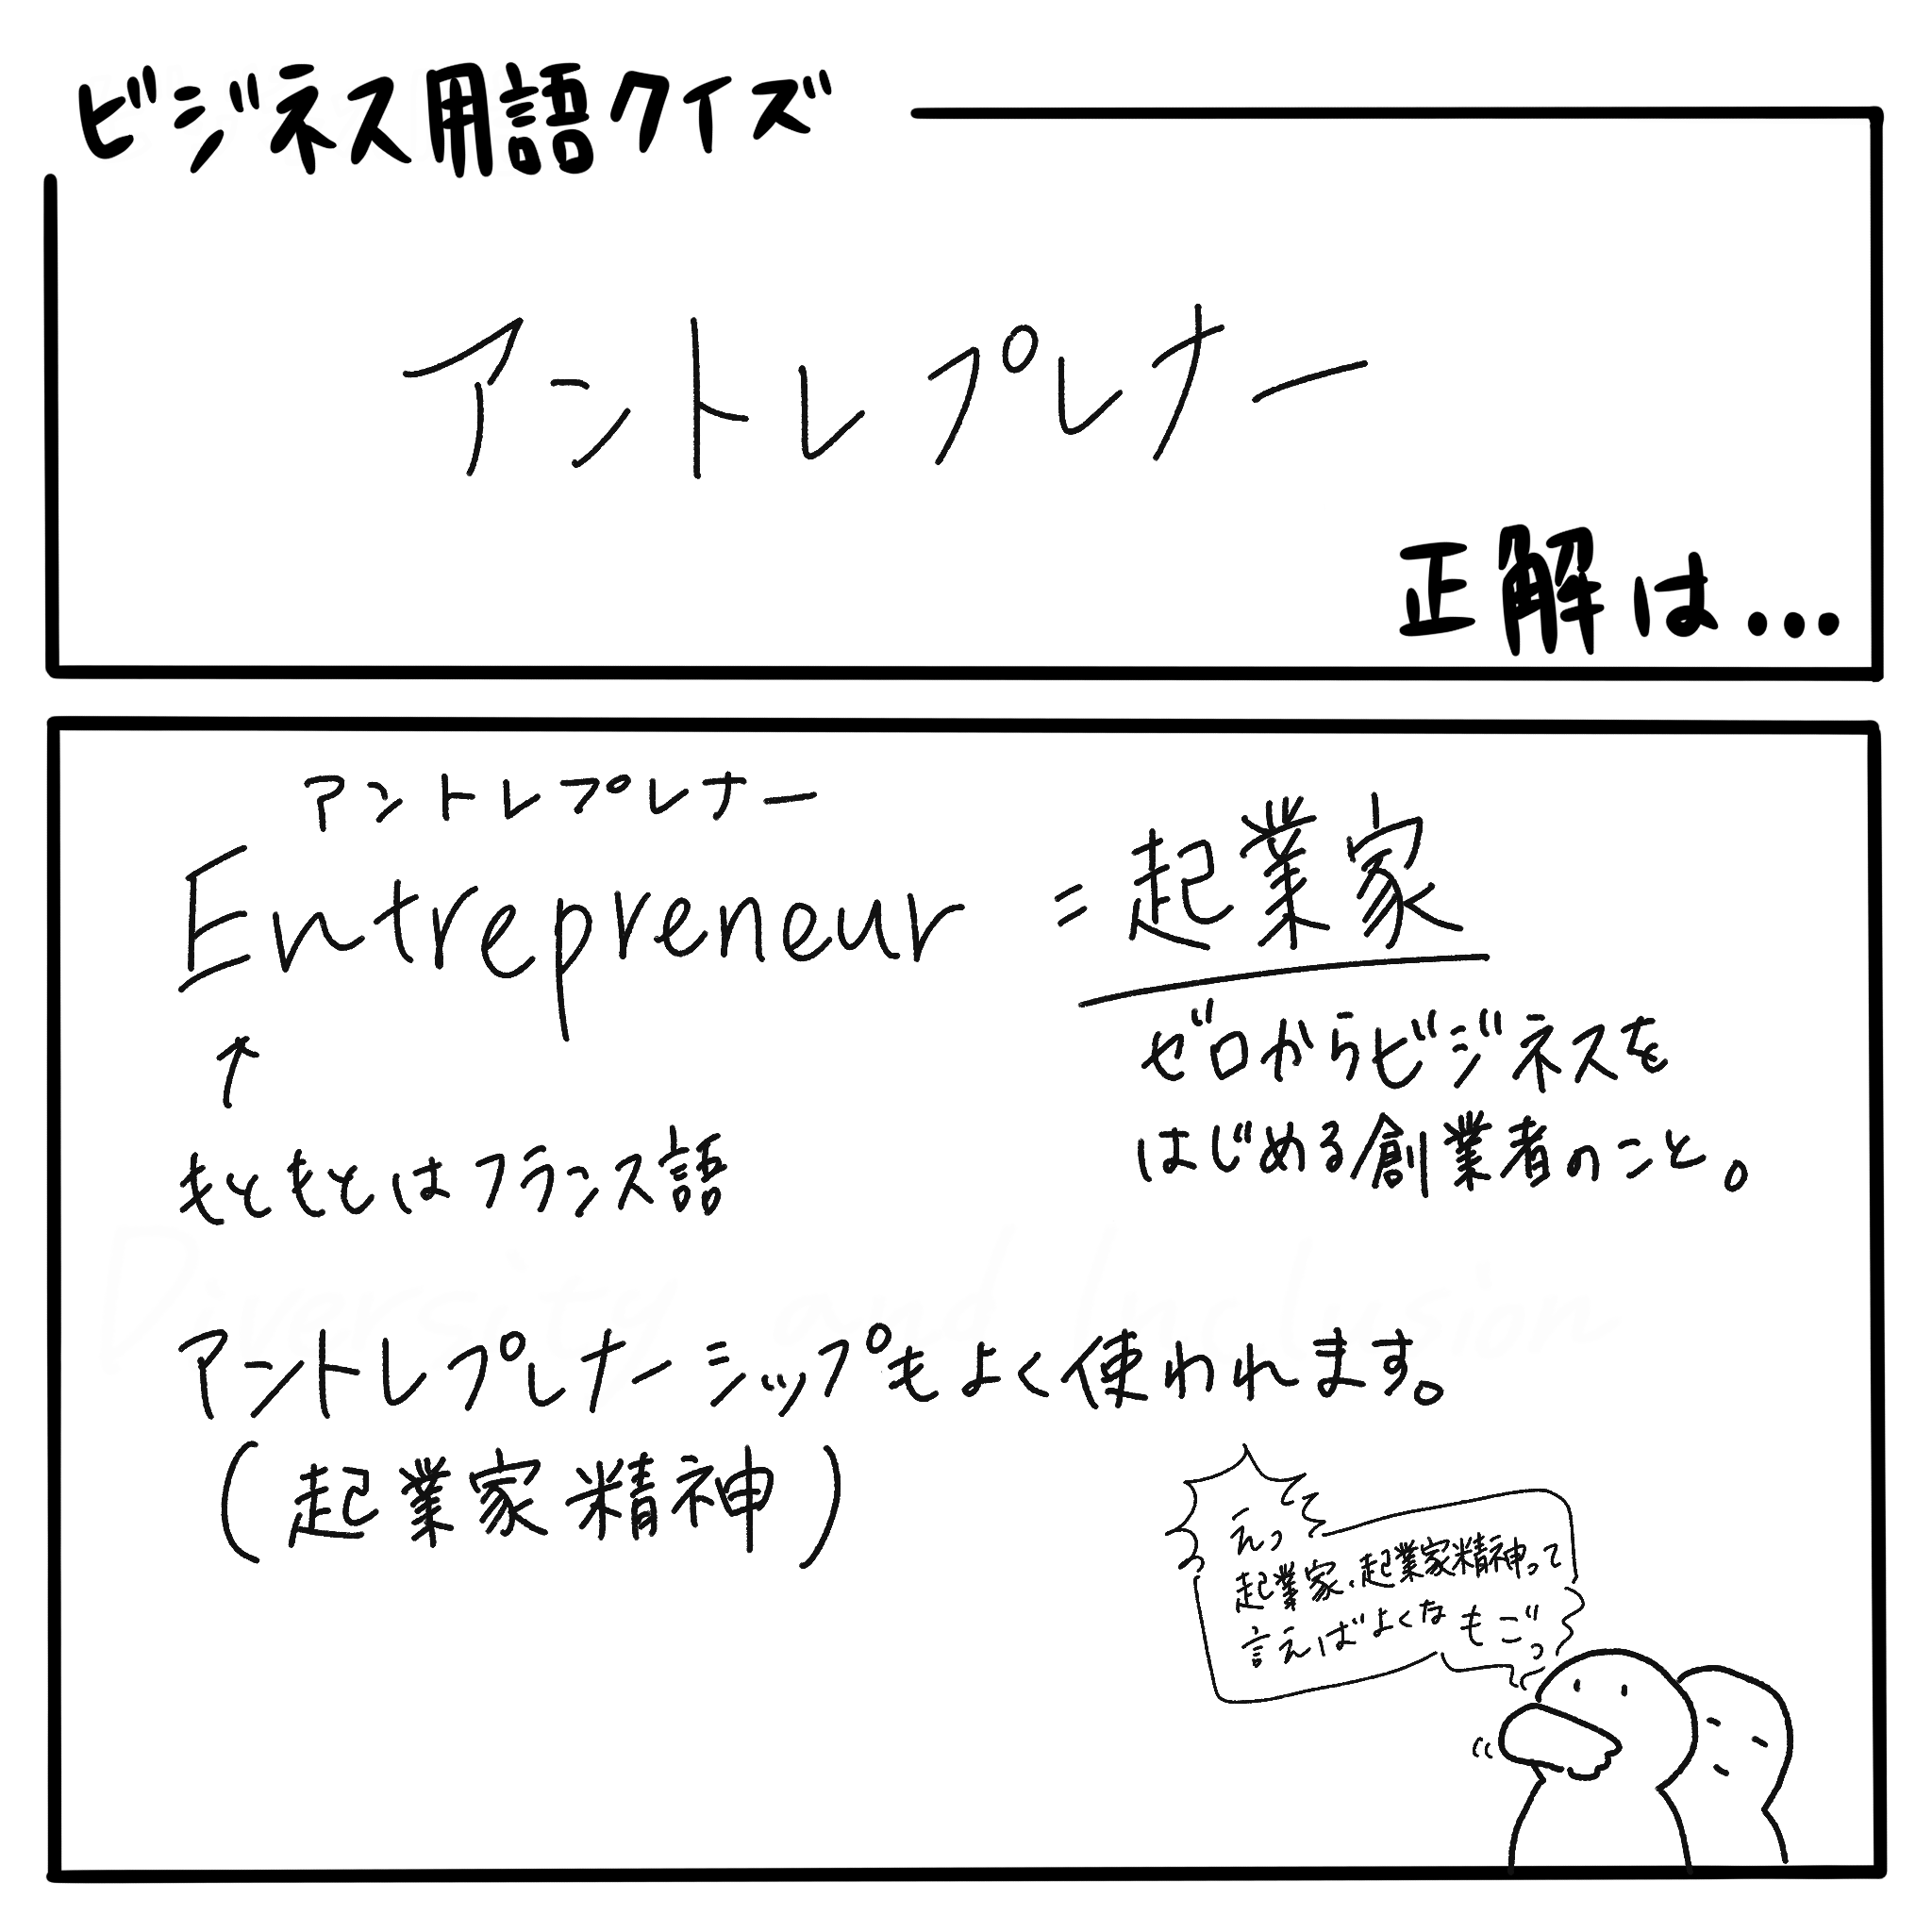 ビジネス用語クイズ
アントレプレナー
正解は...
アントレプレナー
Entrepreneur = 起業家
ゼロからビジネスを
はじめる創業者のこと。
↑
もともとはフランス語
Diversity and Inclusion
アントレプレナーシップもよく使われます。
(起業家精神)
えっ
起業家、起業家精神って
言えばよくな もごっ